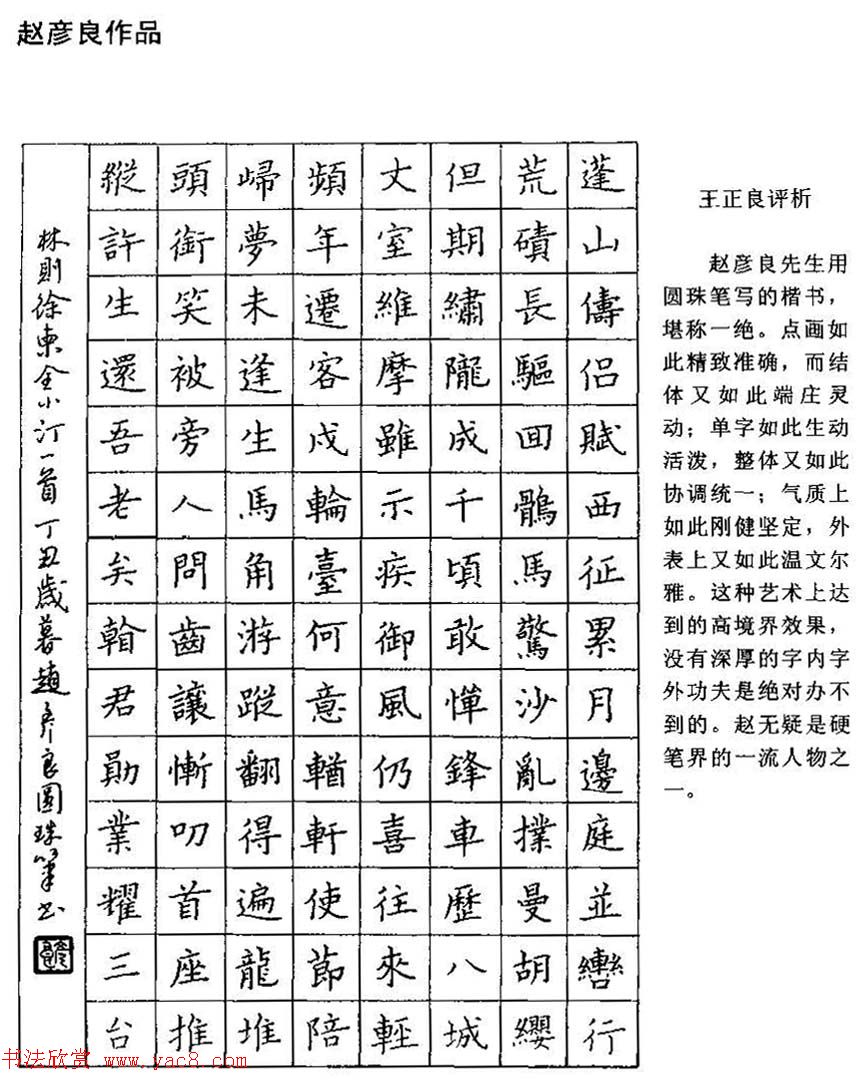 赵彦良作品
蓬山儔侣賦西征累月邊庭並轡行
荒磧長驅囬鶻馬驚沙亂撲曼胡纓
但期繡隴成千頃敢憚鋒車歷八城
丈室維摩雖示疾御風仍喜往來輕
頻年遷客戍輪臺何意輶軒使節陪
歸夢未逢生馬角游蹤翻得遍龍堆
頭銜笑被旁人問齒讓慚叨首座推
縱許生還吾老矣翰君勛業耀三台
林則徐柬全小汀一首丁丑歲暮趙彥良圓珠筆书
王正良评析
赵彦良先生用
圆珠笔写的楷书，
堪称一绝。点画如
此精致准确，而结
体又如此端庄灵
动；单字如此生动
活泼，整体又如此
协调统一；气质上
如此刚健坚定，外
表上又如此温文尔
雅。这种艺术上达
到的高境界效果，
没有深厚的字内字
外功夫是绝对办不
到的。赵无疑是硬
笔界的一流人物之
一。
书法欣赏 www.yac8.com